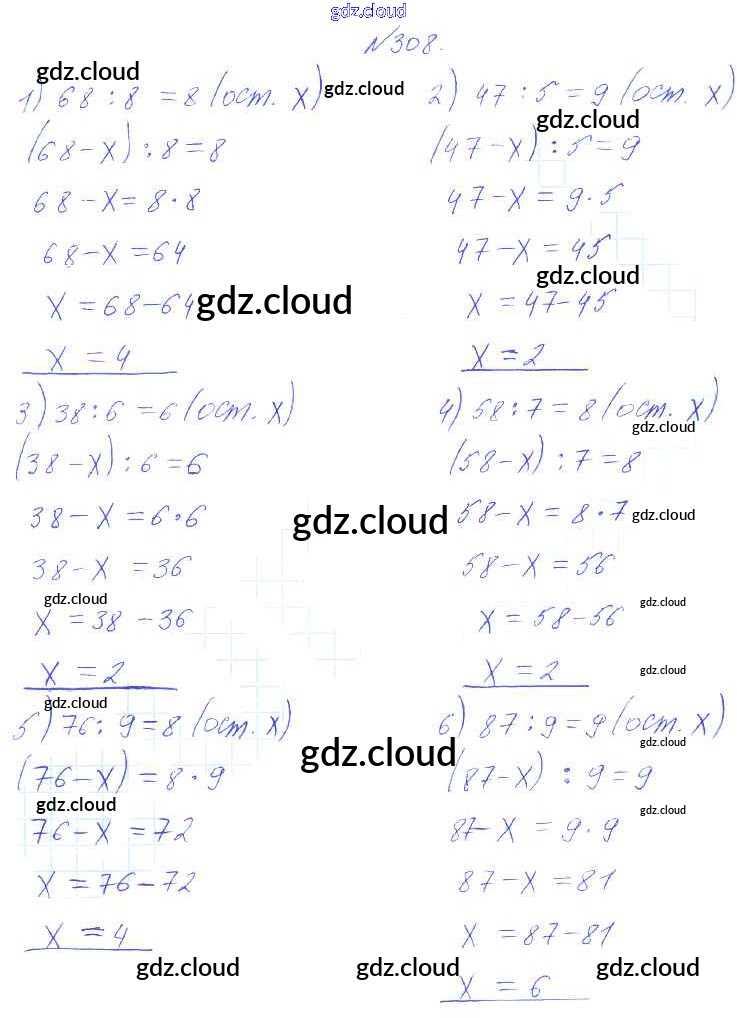 gdz.cloud
№308.
gdz.cloud
1) 68 : 8 = 8 (ост. x)
gdz.cloud
(68 - x) : 8 = 8
68 - x = 8 · 8
68 - x = 64
x = 68 - 64
gdz.cloud
x = 4
2) 47 : 5 = 9 (ост. x)
gdz.cloud
(47 - x) : 5 = 9
47 - x = 9 · 5
47 - x = 45
gdz.cloud
x = 47 - 45
x = 2
3) 38 : 6 = 6 (ост. x)
(38 - x) : 6 = 6
38 - x = 6 · 6
gdz.cloud
38 - x = 36
gdz.cloud
x = 38 - 36
x = 2
4) 58 : 7 = 8 (ост. x)
gdz.cloud
(58 - x) : 7 = 8
58 - x = 8 · 7
gdz.cloud
58 - x = 56
gdz.cloud
x = 58 - 56
x = 2
gdz.cloud
5) 76 : 9 = 8 (ост. x)
gdz.cloud
(76 - x) = 8 · 9
gdz.cloud
76 - x = 72
x = 76 - 72
x = 4
gdz.cloud
6) 87 : 9 = 9 (ост. x)
gdz.cloud
(87 - x) : 9 = 9
gdz.cloud
87 - x = 9 · 9
87 - x = 81
x = 87 - 81
gdz.cloud
gdz.cloud
x = 6